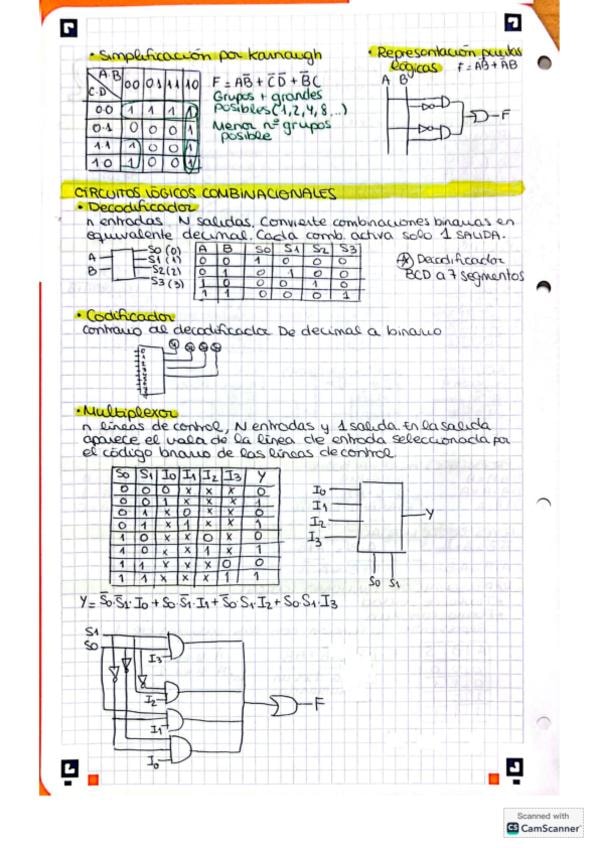 • Simplificación por Karnaugh
A.B 00 01 11 10
C.D
00 1 1 1 1
01 0 0 0 1
11 1 0 0 1
10 1 0 0 1
F = AB̅ + C̅D̅ + B̅C
Grupos + grandes
posibles (1,2,4,8...)
Menor nº grupos
posible
• Representación puertas
lógicas F = A̅B + AB̅
A B
F
CIRCUITOS LÓGICOS COMBINACIONALES
• Decodificador
n entradas, N salidas. Convierte combinaciones binarias en
equivalente decimal. Cada comb. activa solo 1 SALIDA.
A
B
S0 (0)
S1 (1)
S2 (2)
S3 (3)
A B S0 S1 S2 S3
0 0 1 0 0 0
0 1 0 1 0 0
1 0 0 0 1 0
1 1 0 0 0 1
* Decodificador
BCD a 7 segmentos
• Codificador
contrario al decodificador De decimal a binario
• Multiplexor
n líneas de control, N entradas y 1 salida. En la salida
aparece el valor de la línea de entrada seleccionada por
el código binario de las líneas de control
S0 S1 I0 I1 I2 I3 Y
0 0 0 x x x 0
0 0 1 x x x 1
0 1 x 0 x x 0
0 1 x 1 x x 1
1 0 x x 0 x 0
1 0 x x 1 x 1
1 1 x x x 0 0
1 1 x x x 1 1
I0
I1
I2
I3
Y
S0 S1
Y = S̅0·S̅1·I0 + S0·S̅1·I1 + S̅0 S1·I2 + S0·S1·I3
S1
S0
I3
I2
I1
I0
F
Scanned with
CS CamScanner